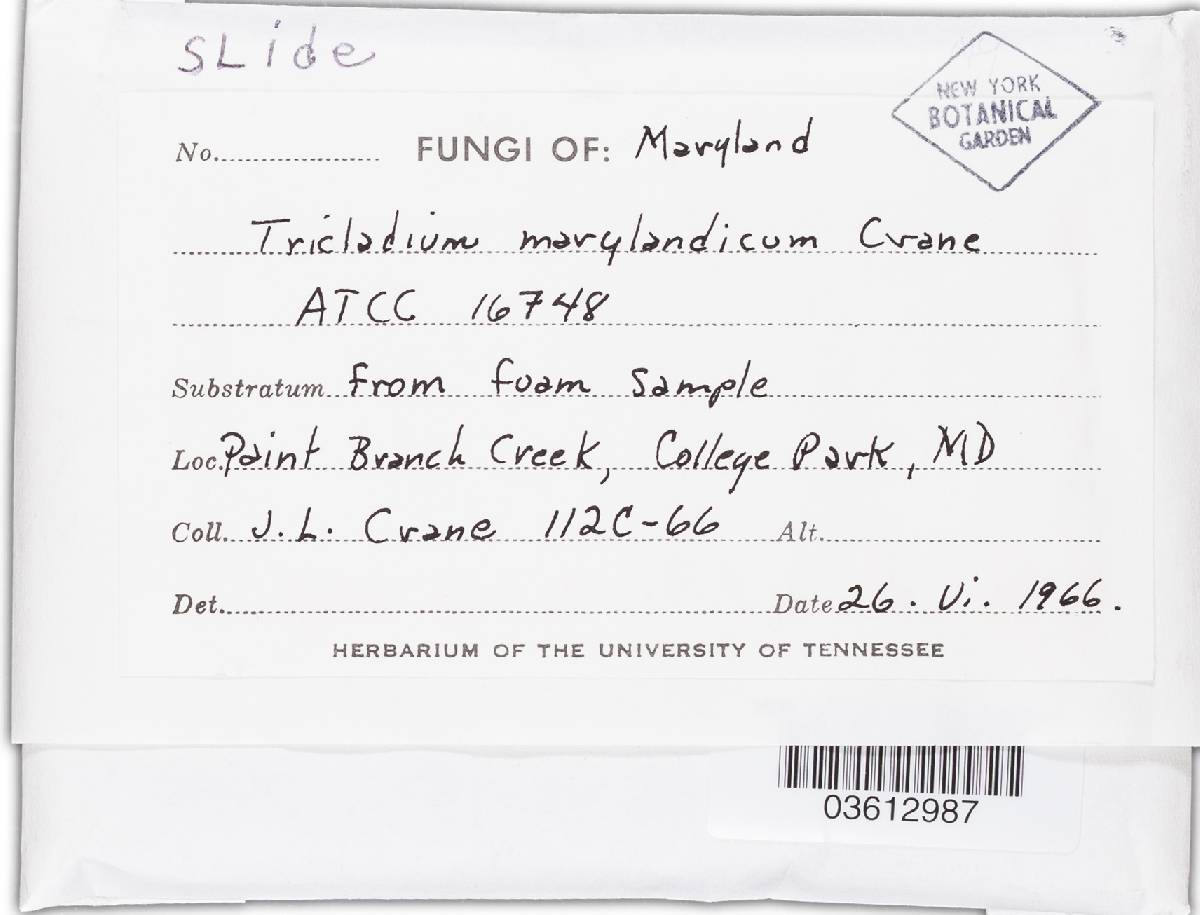 SLide
NEW YORK
BOTANICAL
GARDEN
No. FUNGI OF: Maryland
Tricladium marylandicum Crane
ATCC 16748
Substratum From foam Sample
Loc. Paint Branch Creek, College Park, MD
Coll. J. L. Crane 112C-66 Alt.
Det. Date 26. Vi. 1966.
HERBARIUM OF THE UNIVERSITY OF TENNESSEE
03612987